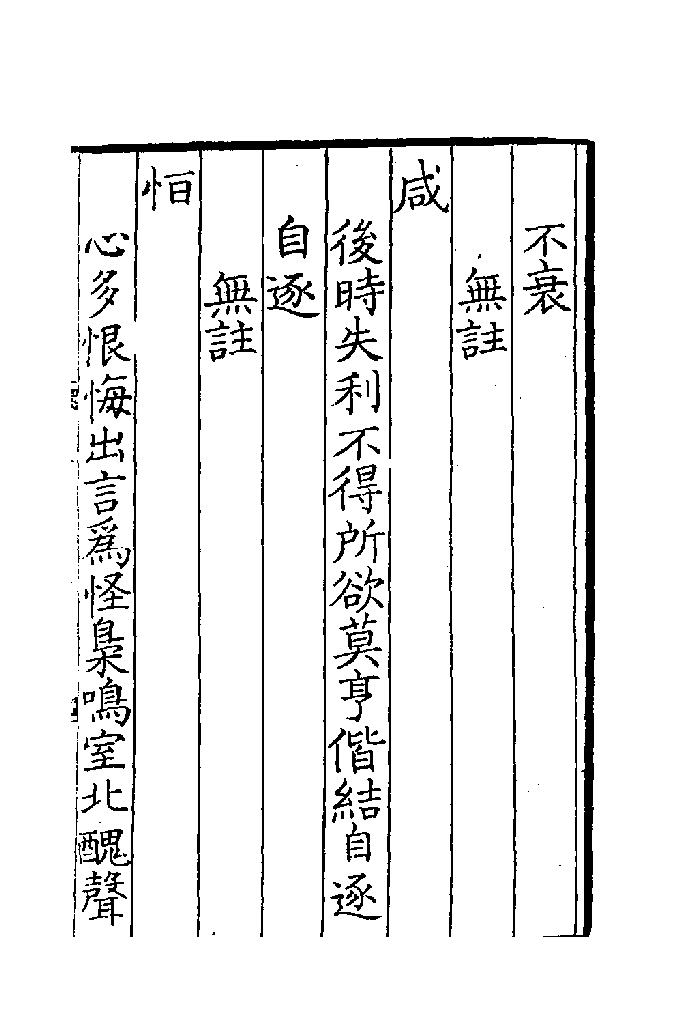 不衰
無註
咸
後時失利不得所欲莫亨偕結自逐
自逐
無註
恒
心多恨悔出言爲怪梟鳴室北醜聲